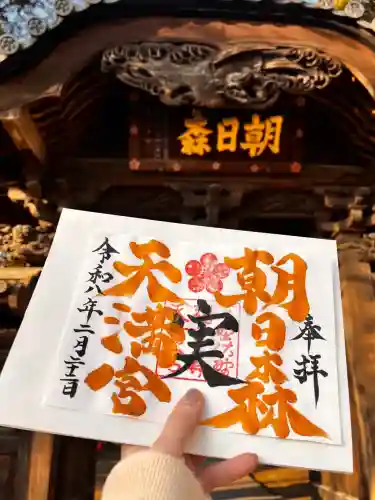 森日朝
奉拝
朝日森
天満宮
実
令和八年二月二十二日